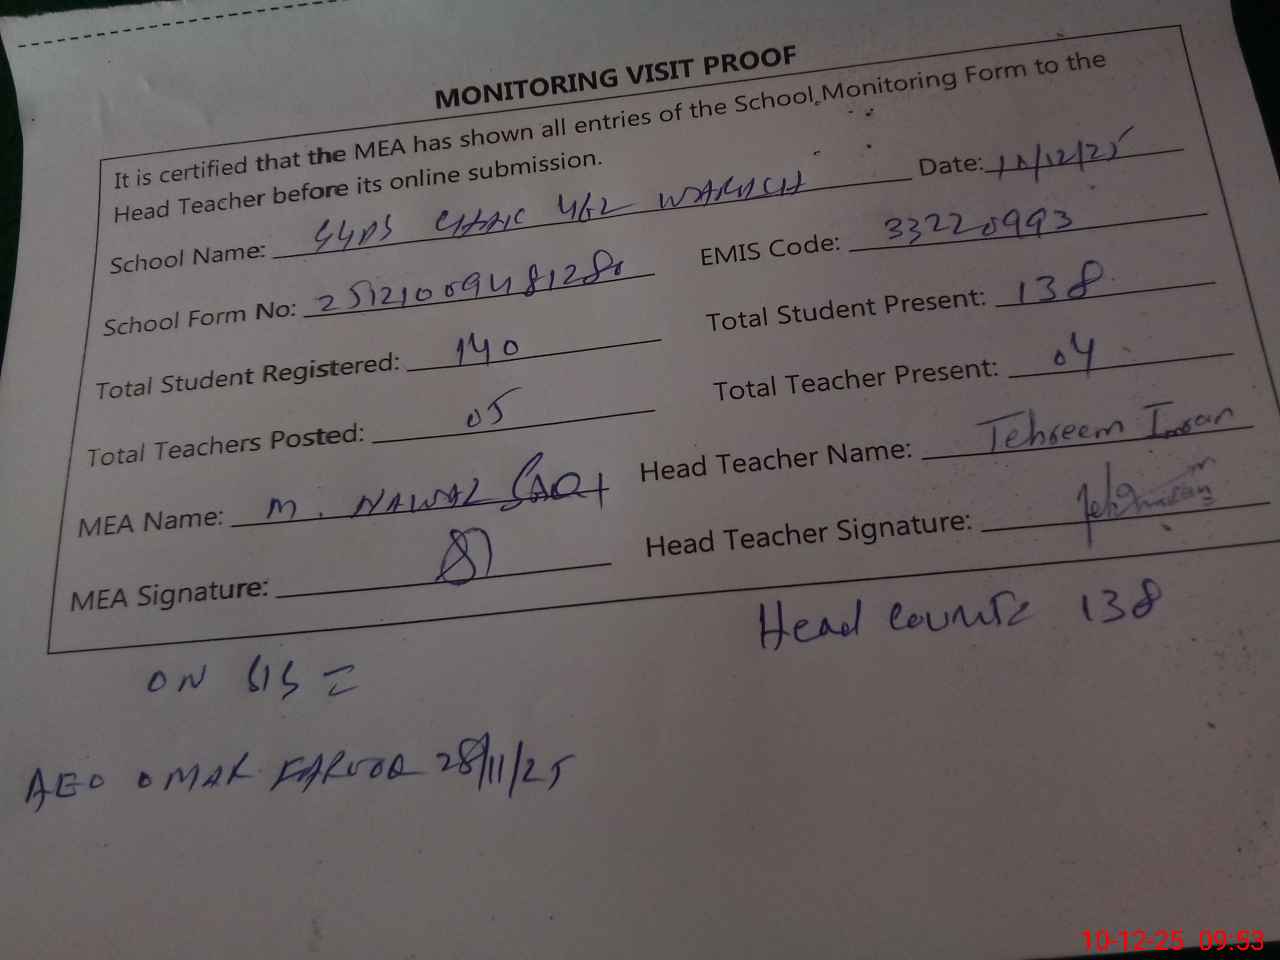 MONITORING VISIT PROOF
It is certified that the MEA has shown all entries of the School Monitoring Form to the
Head Teacher before its online submission.
School Name: WARAICH Date: 10/12/25
School Form No: EMIS Code: 33220993
Total Student Registered: 140 Total Student Present: 138
Total Teachers Posted: 05 Total Teacher Present: 04
MEA Name: M. NAWAZ Head Teacher Name: Tehreem Imran
MEA Signature: Head Teacher Signature:
Head Count: 138
ON SIS =
AEO OMAR FAROOQ 28/11/25
10-12-25 09:53